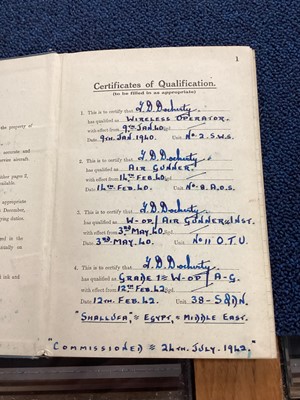 1
Certificates of Qualification.
(to be filled in as appropriate)
1. This is to certify that T. D. Docherty.
has qualified as WIRELESS OPERATOR.
with effect from 9TH JAN. 40.
Date 9TH. JAN. 1940. Unit No. 2. S.W.S.
2. This is to certify that T. D. Docherty.
has qualified as AIR GUNNER.
with effect from 14TH FEB. 40.
Date 14TH FEB. 40. Unit No. 8. A.O.S.
3. This is to certify that T. D. Docherty.
has qualified as W-OP/AIR GUNNER & INST.
with effect from 3RD MAY. 40.
Date 3RD MAY. 40. Unit No 11 O.T.U.
4. This is to certify that T. D. Docherty.
has qualified as GRADE 1 W-OP/A-G.
with effect from 12TH FEB. 42.
Date 12TH FEB. 42. Unit 38 - SQDN.
"SHALLUFA" = EGYPT, = MIDDLE EAST.
"COMMISSIONED = 24TH. JULY. 1942,"
the property of
accurate and
service aircraft.
pages 2,
available.
appropriate
December,
flying duties.
in the
ink and